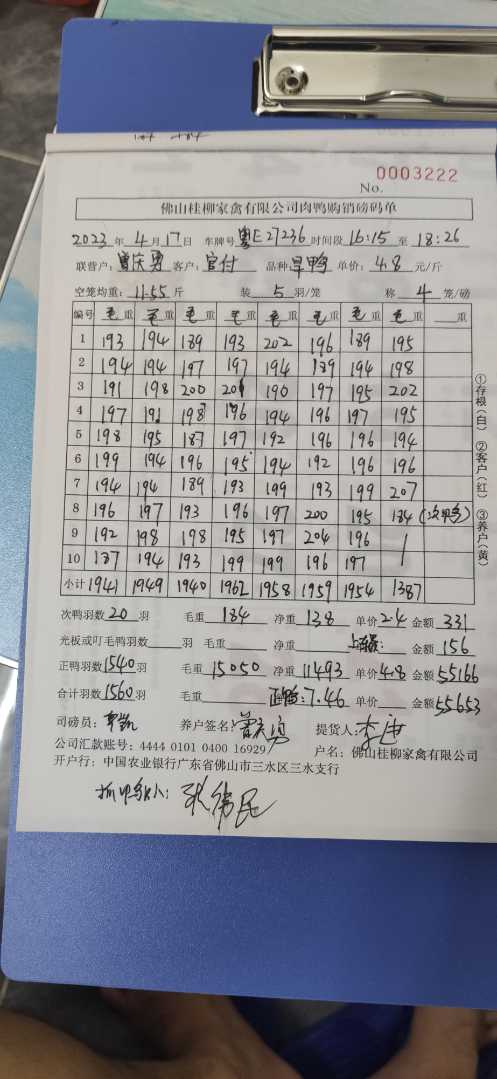 0003222
No.
佛山桂柳家禽有限公司肉鸭购销磅码单
2023年4月17日 车牌号粤E27236时间段16:15至18:26
联营户:曾庆勇 客户:官付 品种:旱鸭 单价:4.8元/斤
空笼均重:11.55斤 装5羽/笼 称4笼/磅
编号 毛重 毛重 毛重 毛重 毛重 毛重 毛重 毛重 重
1 193 194 189 193 202 196 189 195
2 194 194 197 197 194 189 194 198
3 191 198 200 201 190 197 195 202
4 197 191 198 196 194 196 197 195
5 198 195 187 197 192 196 196 194
6 199 194 196 195 194 192 196 196
7 194 194 189 193 199 193 199 207
8 196 197 193 196 197 200 195 184(次鸭)
9 192 198 198 195 197 204 196
10 187 194 193 199 199 196 197
小计 1941 1949 1940 1962 1958 1959 1954 1387
①存根(白) ②客户(红) ③养户(黄)
次鸭羽数20羽 毛重184 净重138 单价2.4 金额331
光板或叮毛鸭羽数羽 毛重 净重 金额156
正鸭羽数1540羽 毛重15050 净重11493 单价4.8 金额55166
合计羽数1560羽 毛重 正鸭:7.46 单价 金额55653
司磅员: 养户签名:曾庆勇 提货人:
公司汇款账号:4444 0101 0400 16929 户名:佛山桂柳家禽有限公司
开户行:中国农业银行广东省佛山市三水区三水支行
抓鸭